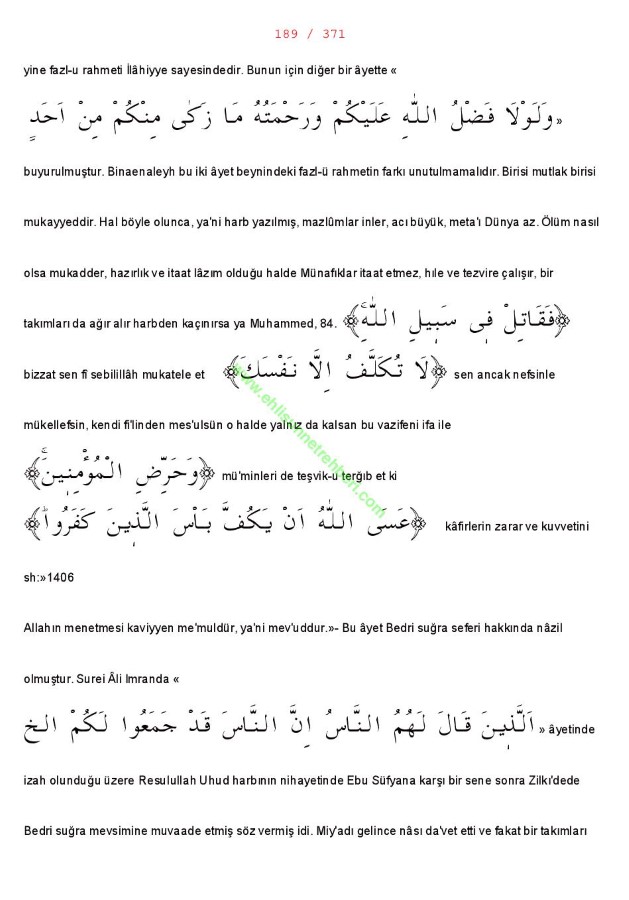 189 / 371
yine fazl-u rahmeti İlâhiyye sayesindedir. Bunun için diğer bir âyette «
وَلَوْلَا فَضْلُ اللَّهِ عَلَيْكُمْ وَرَحْمَتُهُ مَا زَكٰى مِنْكُمْ مِنْ اَحَدٍ »
buyurulmuştur. Binaenaleyh bu iki âyet beynindeki fazl-ü rahmetin farkı unutulmamalıdır. Birisi mutlak birisi
mukayyeddir. Hal böyle olunca, ya'ni harb yazılmış, mazlûmlar inler, acı büyük, meta'ı Dünya az. Ölüm nasıl
olsa mukadder, hazırlık ve itaat lâzım olduğu halde Münafıklar itaat etmez, hıle ve tezvire çalışır, bir
takımları da ağır alır harbden kaçınırsa ya Muhammed, 84. ﴿فَقَاتِلْ فٖى سَبٖيلِ اللّٰهِۚ﴾
bizzat sen fî sebilillâh mukatele et ﴿لَا تُكَلَّفُ اِلَّا نَفْسَكَ﴾ sen ancak nefsinle
mükellefsin, kendi fi'linden mes'ulsün o halde yalnız da kalsan bu vazifeni ifa ile
﴿وَحَرِّضِ الْمُؤْمِنٖينَۚ﴾ mü'minleri de teşvik-u terğıb et ki
﴿عَسَى اللّٰهُ اَنْ يَكُفَّ بَاْسَ الَّذٖينَ كَفَرُواؕ﴾ kâfirlerin zarar ve kuvvetini
sh:»1406
Allahın menetmesi kaviyyen me'muldür, ya'ni mev'uddur.»- Bu âyet Bedri suğra seferi hakkında nâzil
olmuştur. Surei Âli Imranda «
اَلَّذٖينَ قَالَ لَهُمُ النَّاسُ اِنَّ النَّاسَ قَدْ جَمَعُوا لَكُمْ الخ » âyetinde
izah olunduğu üzere Resulullah Uhud harbının nihayetinde Ebu Süfyana karşı bir sene sonra Zilkı'dede
Bedri suğra mevsimine muvaade etmiş söz vermiş idi. Miy'adı gelince nâsı da'vet etti ve fakat bir takımları
www.ehlisunnetrehberi.com